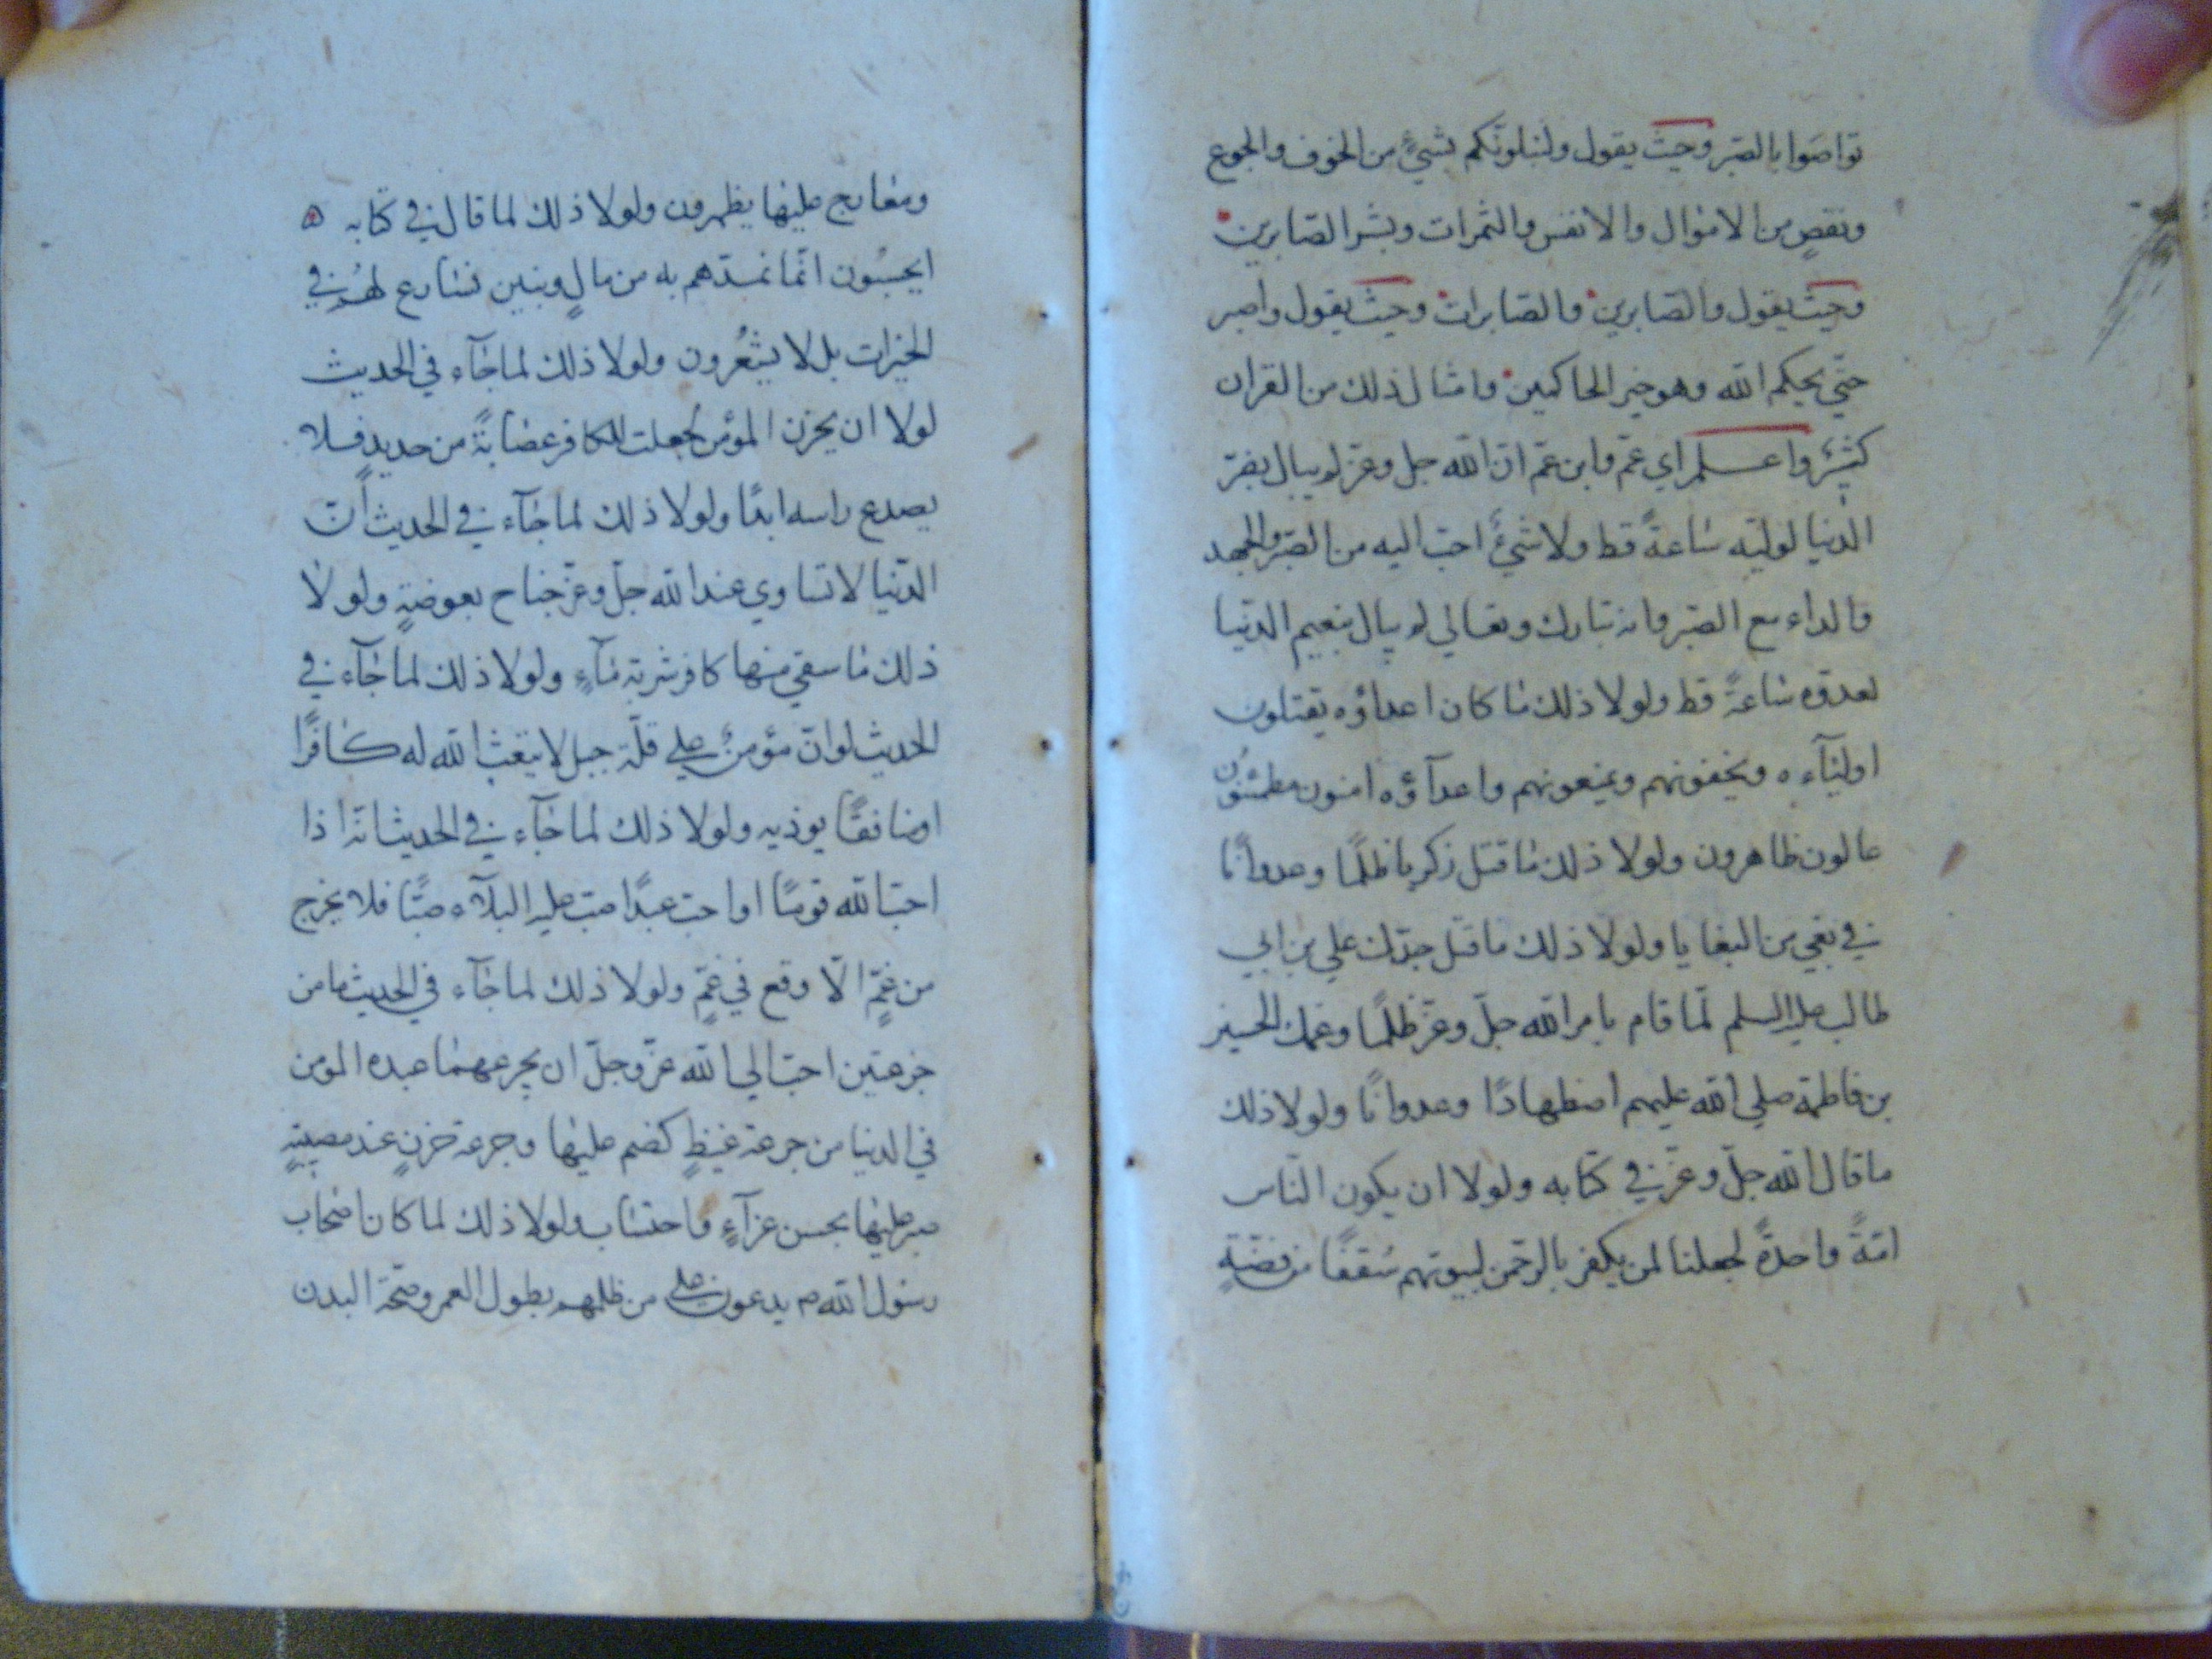 تواصَوا بالصّبر وحيث يقول ولنبلونّكم بشيءٍ من الخوف والجوع
ونقصٍ من الاموال والانفس والثمرات وبشر الصّابرين
وحيث يقول والصّابرين والصّابرات وحيث يقول واصبر
حتّي يحكم الله وهو خير الحاكمين وامثال ذلك من القران
كثيرٌ واعلم اي عمّ وابن عمّ انّ الله جل وعزّ لم يبال بضرّ
الدّنيا لوليّه ساعةً قط ولا شيءٌ احبّ اليه من الصّبر والجهد
والداء مع الصّبر وانه تبارك وتعالي لم يبال بنعيم الدّنيا
لعدوّه ساعةً قط ولولا ذلك ما كان اعداؤه يقتلون
اوليآءه ويخيفونهم ويمنعونهم واعدآؤه امنون مطمئنّون
عالون ظاهرون ولولا ذلك ما قتل زكريا ظلمًا وعدوانًا
في بغي من البغايا ولولا ذلك ما قتل جدّك علي بن ابي
طالب عليه السلم لمّا قام بامر الله جلّ وعزّ ظلمًا وعمك الحسين
بن فاطمة صلي الله عليهم اضطهادًا وعدوانًا ولولا ذلك
ما قال الله جلّ وعزّ في كتابه ولولا ان يكون النّاس
امّةً واحدةً لجعلنا لمن يكفر بالرّحمن لبيوتهم سُقفًا من فضّةٍ
ومعارج عليها يظهرون ولولا ذلك لما قال في كتابه
ايحسبُون انّما نمدّهم به من مالٍ وبنين نسارع لهُم في
الخيرات بل لا يشعُرون ولولا ذلك لما جآء في الحديث
لولا ان يحزن المؤمن لجعلت للكافر عصابةً من حديدٍ فلا
يصدع راسه ابدًا ولولا ذلك لما جآء في الحديث انّ
الدّنيا لا تساوي عند الله جلّ وعزّ جناح بعوضةٍ ولولا
ذلك ما سقي منها كافر شربة مآءٍ ولولا ذلك لما جآء في
الحديث لو انّ مؤمنٌ علي قلّة جبل لابتعث الله له كافرًا
او منافقًا يوذيه ولولا ذلك لما جآء في الحديث انّه اذا
احبّ الله قومًا او احبّ عبدًا صبّ عليه البلآء صبًّا فلا يخرج
من غمٍّ الّا وقع في غمٍّ ولولا ذلك لما جآء في الحديث ما من
جرعتين احبّ الي الله عزّ وجلّ ان يجرعهما عبده المومن
في الدنيا من جرعة غيظٍ كضم عليها وجرعة حزنٍ عند مصيبةٍ
صبر عليها بحسن عزآءٍ واحتساب ولولا ذلك لما كان اصحاب
رسول الله ص يدعون علي من ظلمهم بطول العمر وصحّة البدن